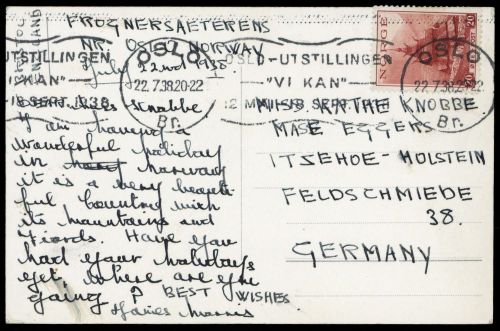 FROGNERSAETERENS
NR. OSLO NORWAY
July 22nd 1938.
I am having a
wonderful holiday
in Norway
it is a very beauti-
ful Country with
its mountains and
Fiords. Have you
had your holidays
yet, where are you
going ? BEST WISHES
NORGE
20 20
OSLO
22.7.38.20-22
Br.
OSLO-UTSTILLINGEN
"VI KAN"
OSLO
22.7.38.20-22
Br.
MISS KATHE KNOBBE
MASE EGGERS
ITZEHOE-HOLSTEIN
FELDSCHMIEDE
38.
GERMANY